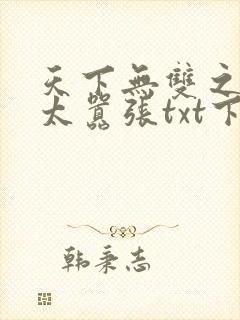 天下無雙之
太囂張txt下
韩秉志